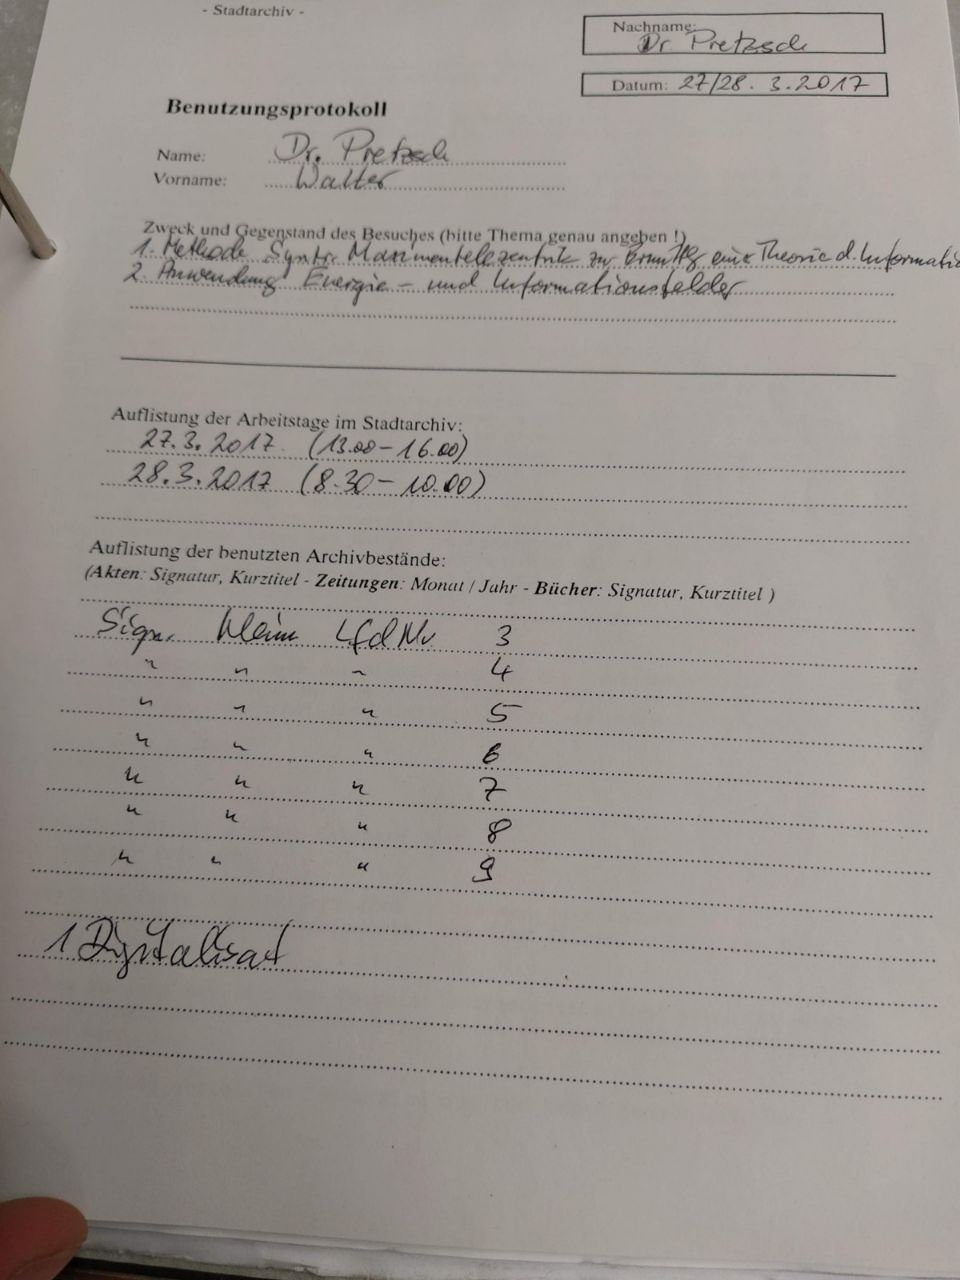 - Stadtarchiv -
Nachname:
Dr. Pretzsch
Datum: 27/28. 3. 2017
Benutzungsprotokoll
Name: Dr. Pretzsch
Vorname: Walter
Zweck und Gegenstand des Besuches (bitte Thema genau angeben !)
1. Methode zur eine Theorie d. Informatio
2. Anwendung Energie - und Informationsfelder
Auflistung der Arbeitstage im Stadtarchiv:
27. 3. 2017 (13.00 - 16.00)
28. 3. 2017 (8.30 - 10.00)
Auflistung der benutzten Archivbestände:
(Akten: Signatur, Kurztitel - Zeitungen: Monat / Jahr - Bücher: Signatur, Kurztitel )
Sign. Lfd Nr. 3
" " " 4
" " " 5
" " " 6
" " " 7
" " " 8
" " " 9
1 Digitalisat